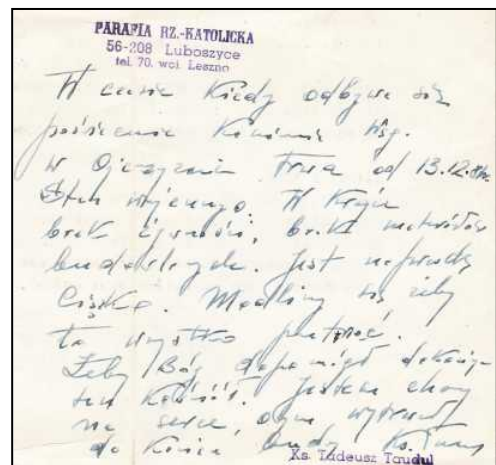 PARAFIA RZ.-KATOLICKA
56-208 Luboszyce
tel. 70. woj. Leszno
W czasie kiedy odbywa się
poświęcenie Kamienia Węg.
w Ojczyźnie trwa od 13.12.
Stan wojenny. W kraju
brak żywności, brak materiałów
budowlanych. Jest naprawdę
ciężko. Modlimy się żeby
to wszystko
Żeby Bóg dopomógł
ten Kościół. Jestem chory
na serce, wytrwać
do końca budowy Ks.
Ks. Tadeusz Taudul